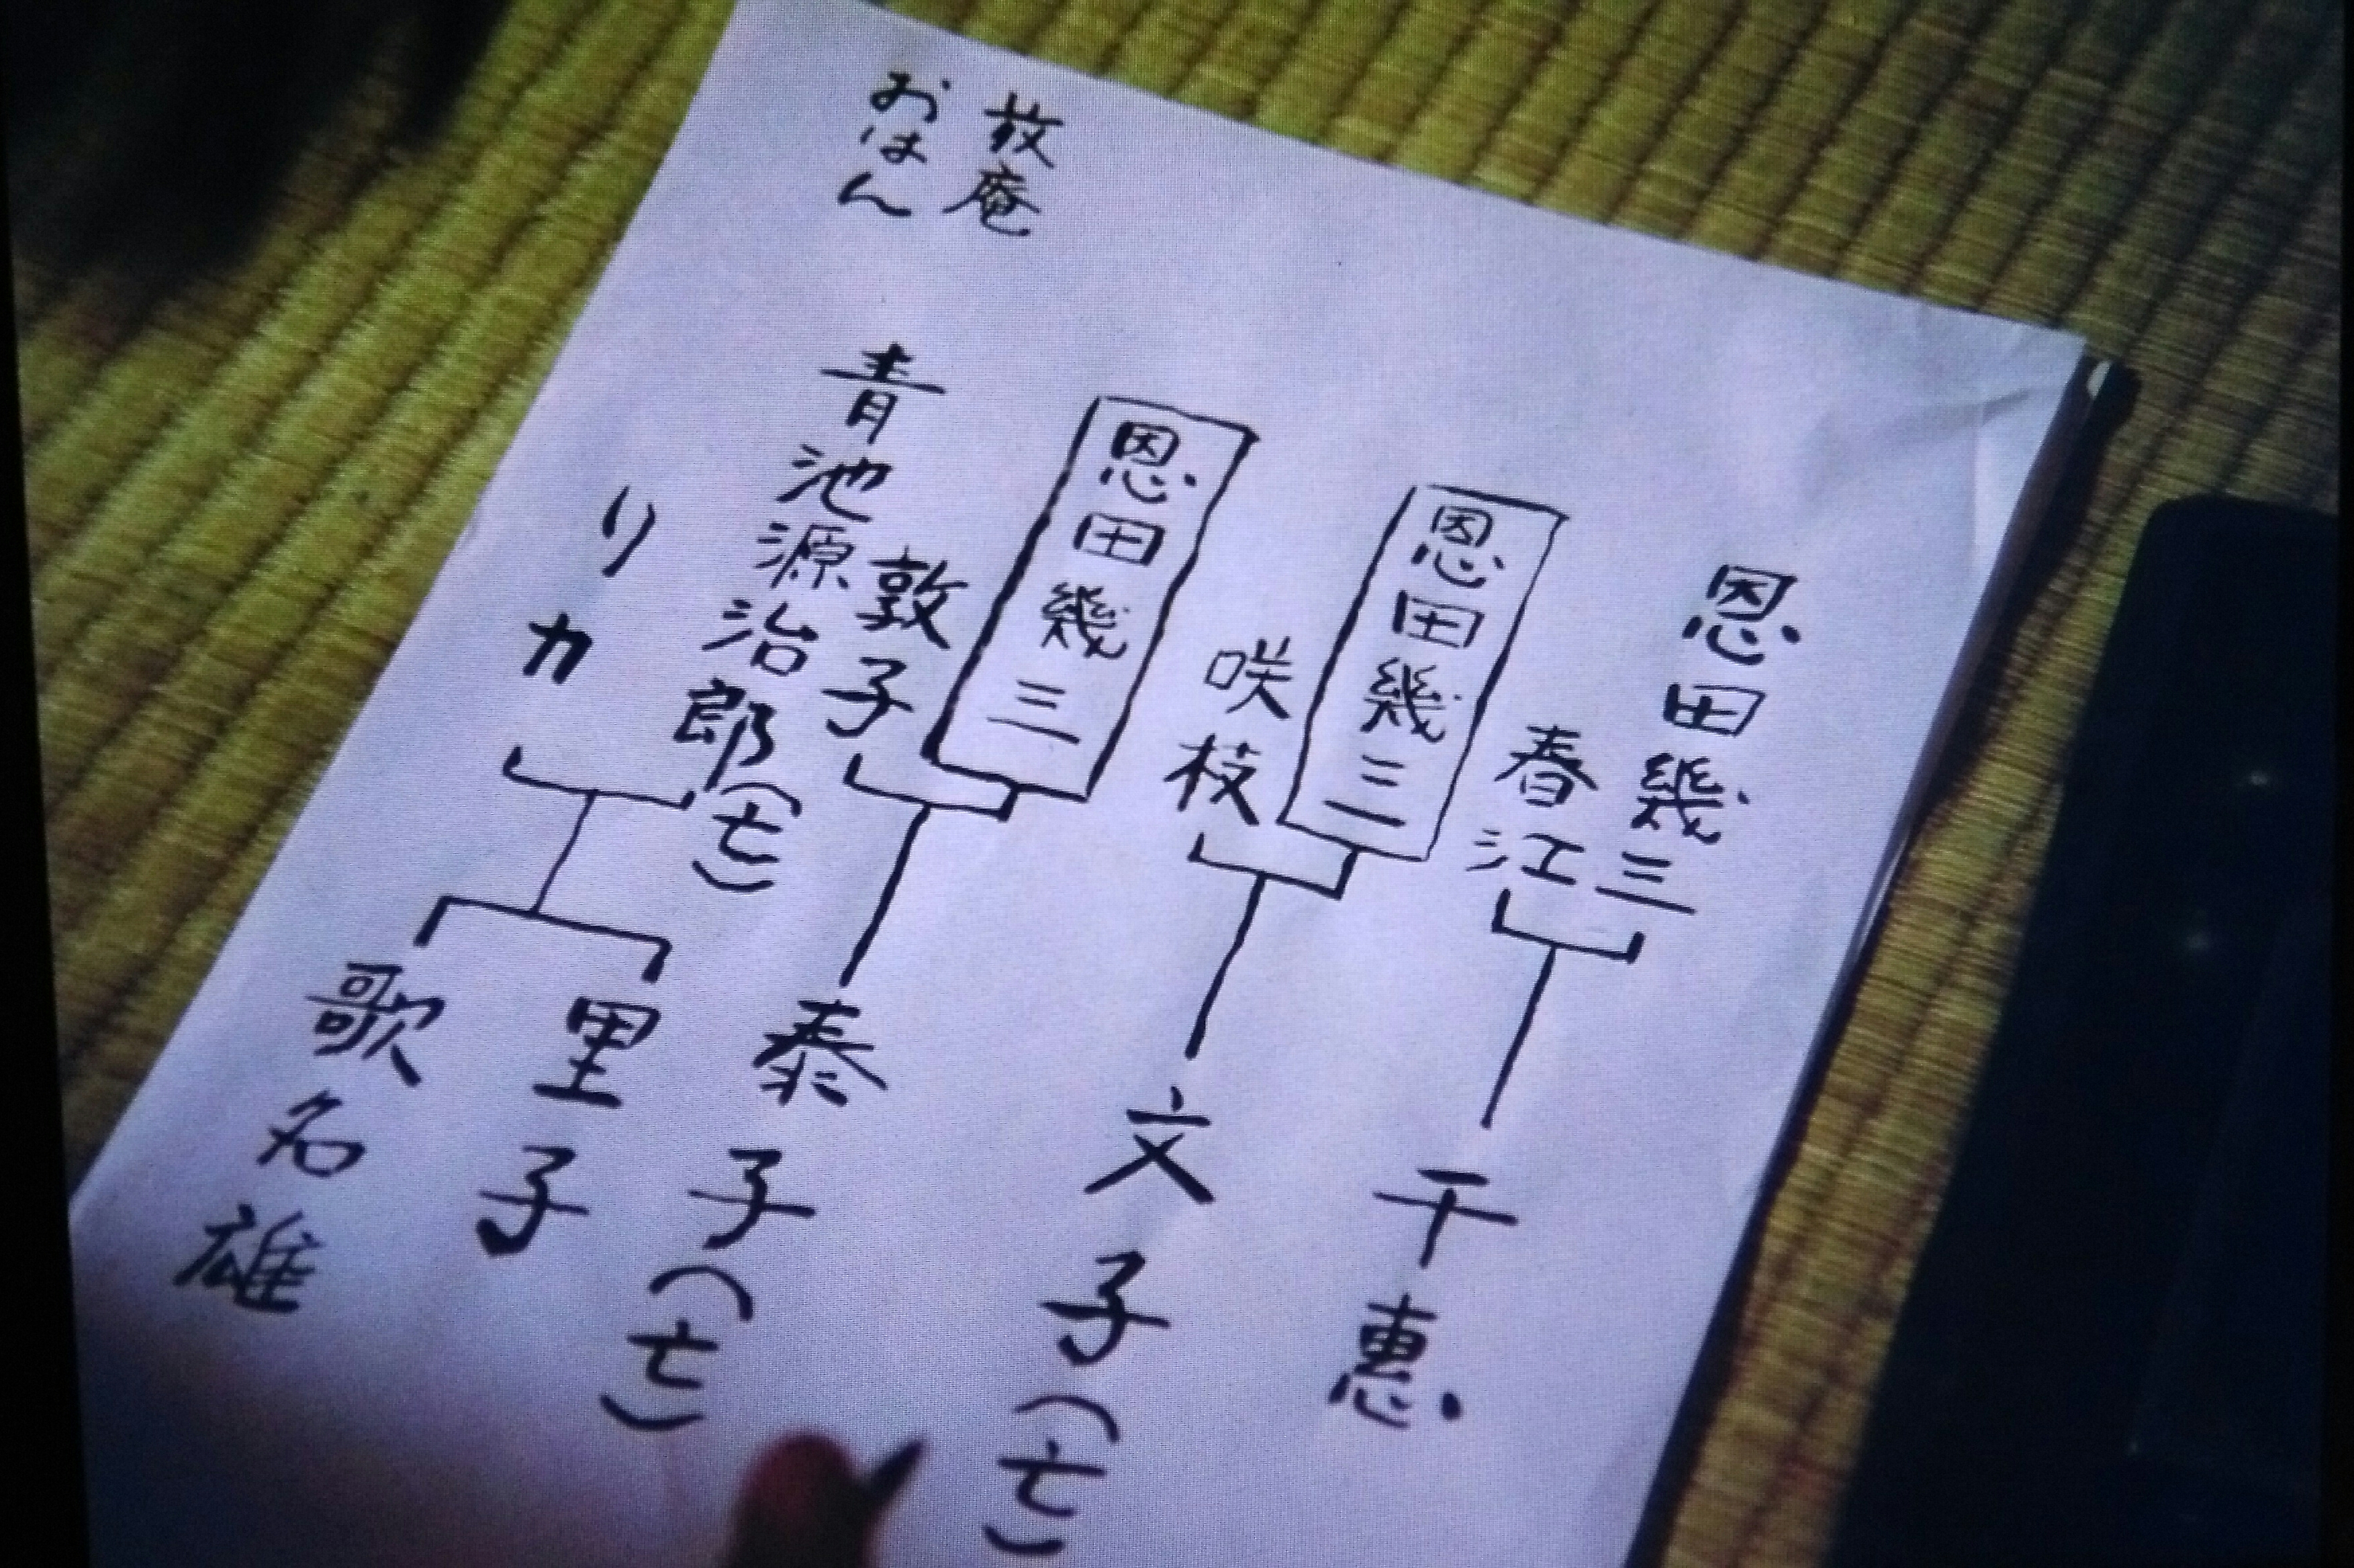 恩田幾三
春江
千恵
恩田幾三
咲枝
文子(亡)
恩田幾三
敦子
泰子(亡)
青池源治郎(亡)
リカ
里子
歌名雄
放庵
おはん